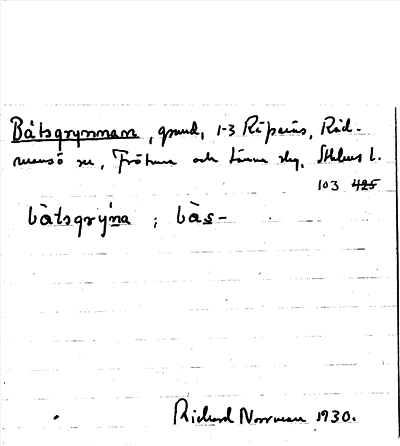 Båtsgrynnan, grund, 1-3 Räfsnäs, Råd-
mansö sn, Frötuna och Länna skg, Sthlms l.
103 425
bàtsgrýna ; bàs-
Richard Norrman 1930.